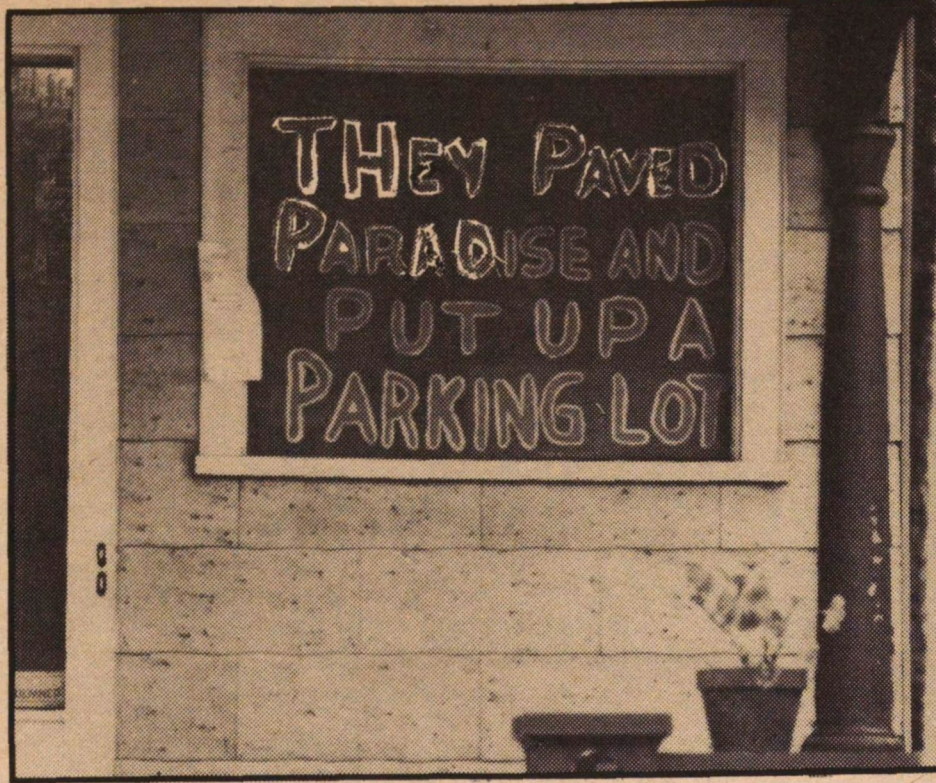 THEY PAVED
PARADISE AND
PUT UP A
PARKING LOT